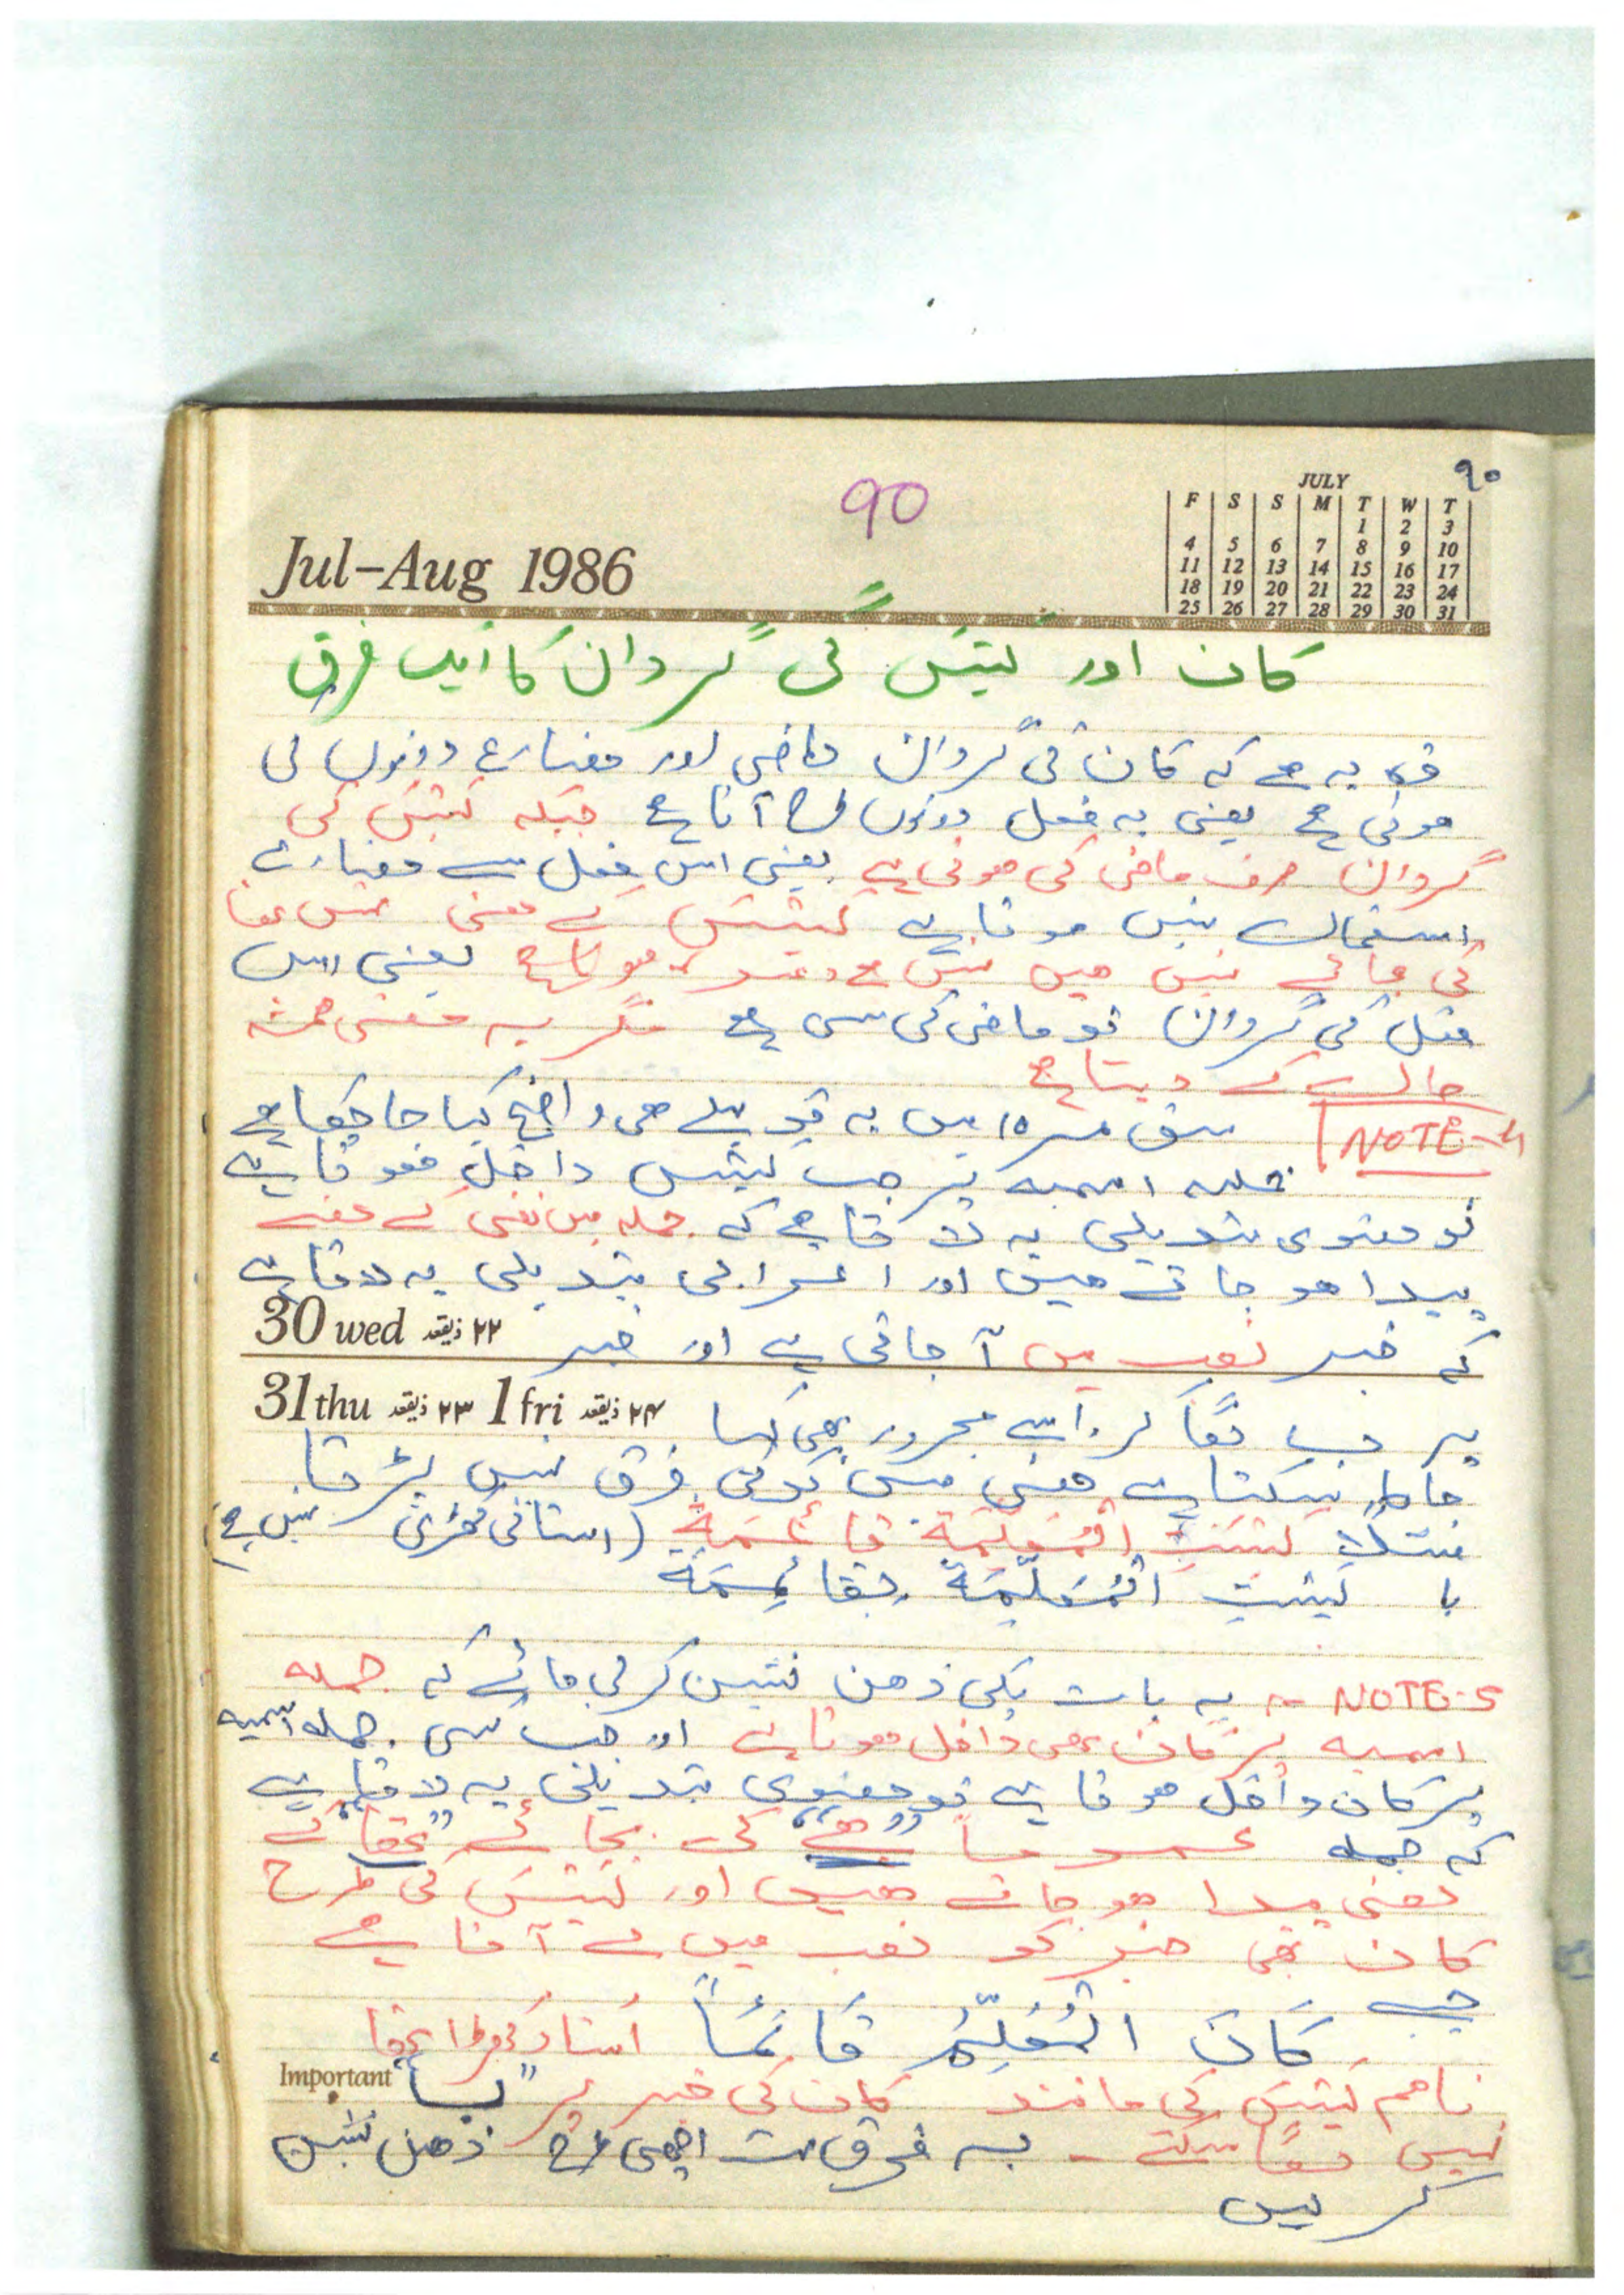 ۹۰
90
JULY
F S S M T W T
1 2 3
4 5 6 7 8 9 10
11 12 13 14 15 16 17
18 19 20 21 22 23 24
25 26 27 28 29 30 31
Jul-Aug 1986
کان اور لیْسَ کی گردان کا ایک فرق
فرق یہ ہے کہ کان کی گردان ماضی اور مضارع دونوں کی
ہوتی ہے یعنی یہ فعل دونوں طرح آتا ہے جبکہ لَیْسَ کی
گردان صرف ماضی کی ہوتی ہے یعنی اس فعل سے مضارع
استعمال نہیں ہوتا ہے لَیْسَ کے معنی نہیں تھا
کی بجائے نہیں ہیں نہیں ہے وغیرہ ہوتا ہے یعنی اس
فعل کی گردان تو ماضی کی سی ہے مگر یہ معنی ہمیشہ
حال کے دیتا ہے
NOTE-4 سبق نمبر ۱۵ میں یہ تو پہلے ہی واضح کیا جا چکا ہے
جملہ اسمیہ پر جب لیْسَ داخل ہوتا ہے
تو معنوی تبدیلی یہ لاتا ہے کہ جملہ میں نفی کے معنے
پیدا ہو جاتے ہیں اور اعرابی تبدیلی یہ لاتا ہے
30 wed ۲۲ ذیقعد
کہ خبر نصب میں آ جاتی ہے اور خبر
31 thu ۲۳ ذیقعد 1 fri ۲۴ ذیقعد
پر ب لگا کر اسے مجرور بھی کیا
جا سکتا ہے معنی میں کوئی فرق نہیں پڑتا
مثلاً لَیْسَتِ الْمُعَلِّمَةُ قَائِمَةً (استانی کھڑی نہیں ہے)
یا لَیْسَتِ الْمُعَلِّمَةُ بِقَائِمَةٍ
NOTE-5 :- یہ بات بھی ذہن نشین کر لی جائے کہ جملہ
اسمیہ پر کان بھی داخل ہوتا ہے اور جب کسی جملہ اسمیہ
پر کان داخل ہوتا ہے تو معنوی تبدیلی یہ لاتا ہے
کہ جملہ عموماً "ہے" کی بجائے "تھا" کے
معنی پیدا ہو جاتے ہیں اور لَیْسَ کی طرح
کان بھی خبر کو نصب میں لے آتا ہے
جیسے کَانَ الْمُعَلِّمُ قَائِمًا استاد کھڑا تھا
Important
تاہم لَیْسَ کی مانند کان کی خبر پر "ب"
نہیں لگا سکتے - یہ فرق بہت اچھی طرح ذہن نشین
کر لیں